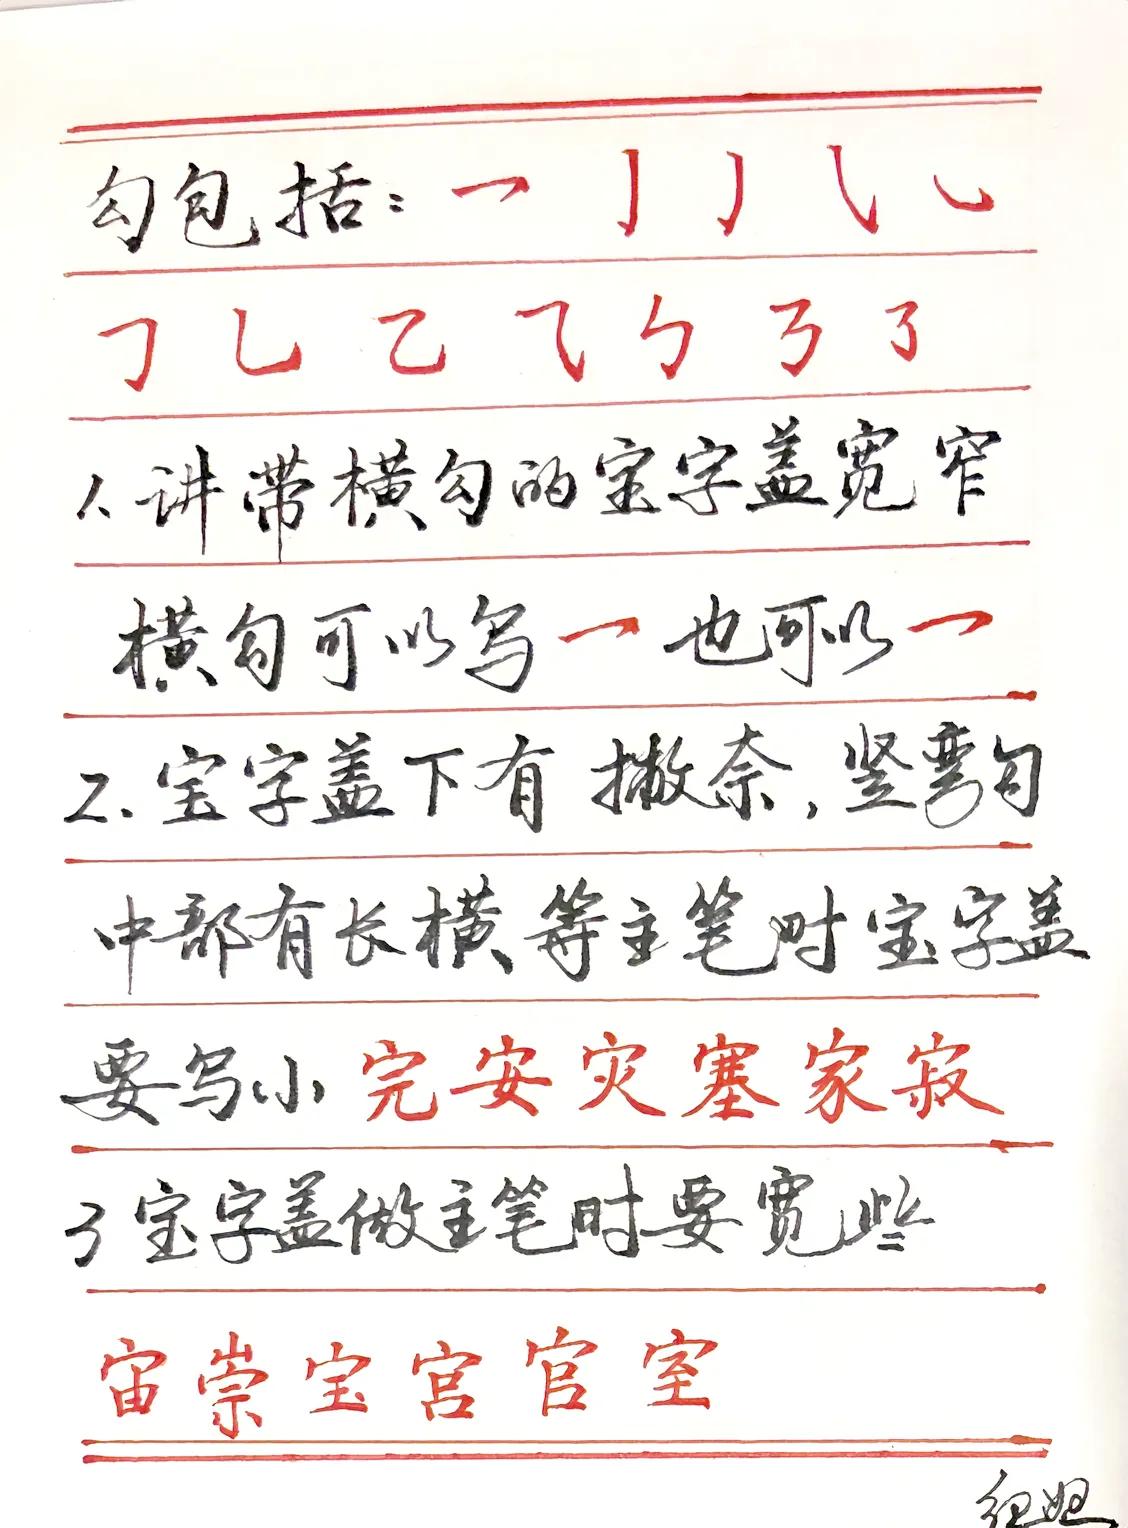 勾包括：乛 亅 亅 ㇂ ㇃
𠃌 乚 乙 ⺄ ㇉ ㇡ ㇌
1.讲带横勾的宝字盖宽窄
横勾可以写乛也可以乛
2.宝字盖下有撇奈,竖弯勾
中部有长横等主笔时宝字盖
要写小完安灾塞家寂
3宝字盖做主笔时要宽些
宙崇宝宫官室